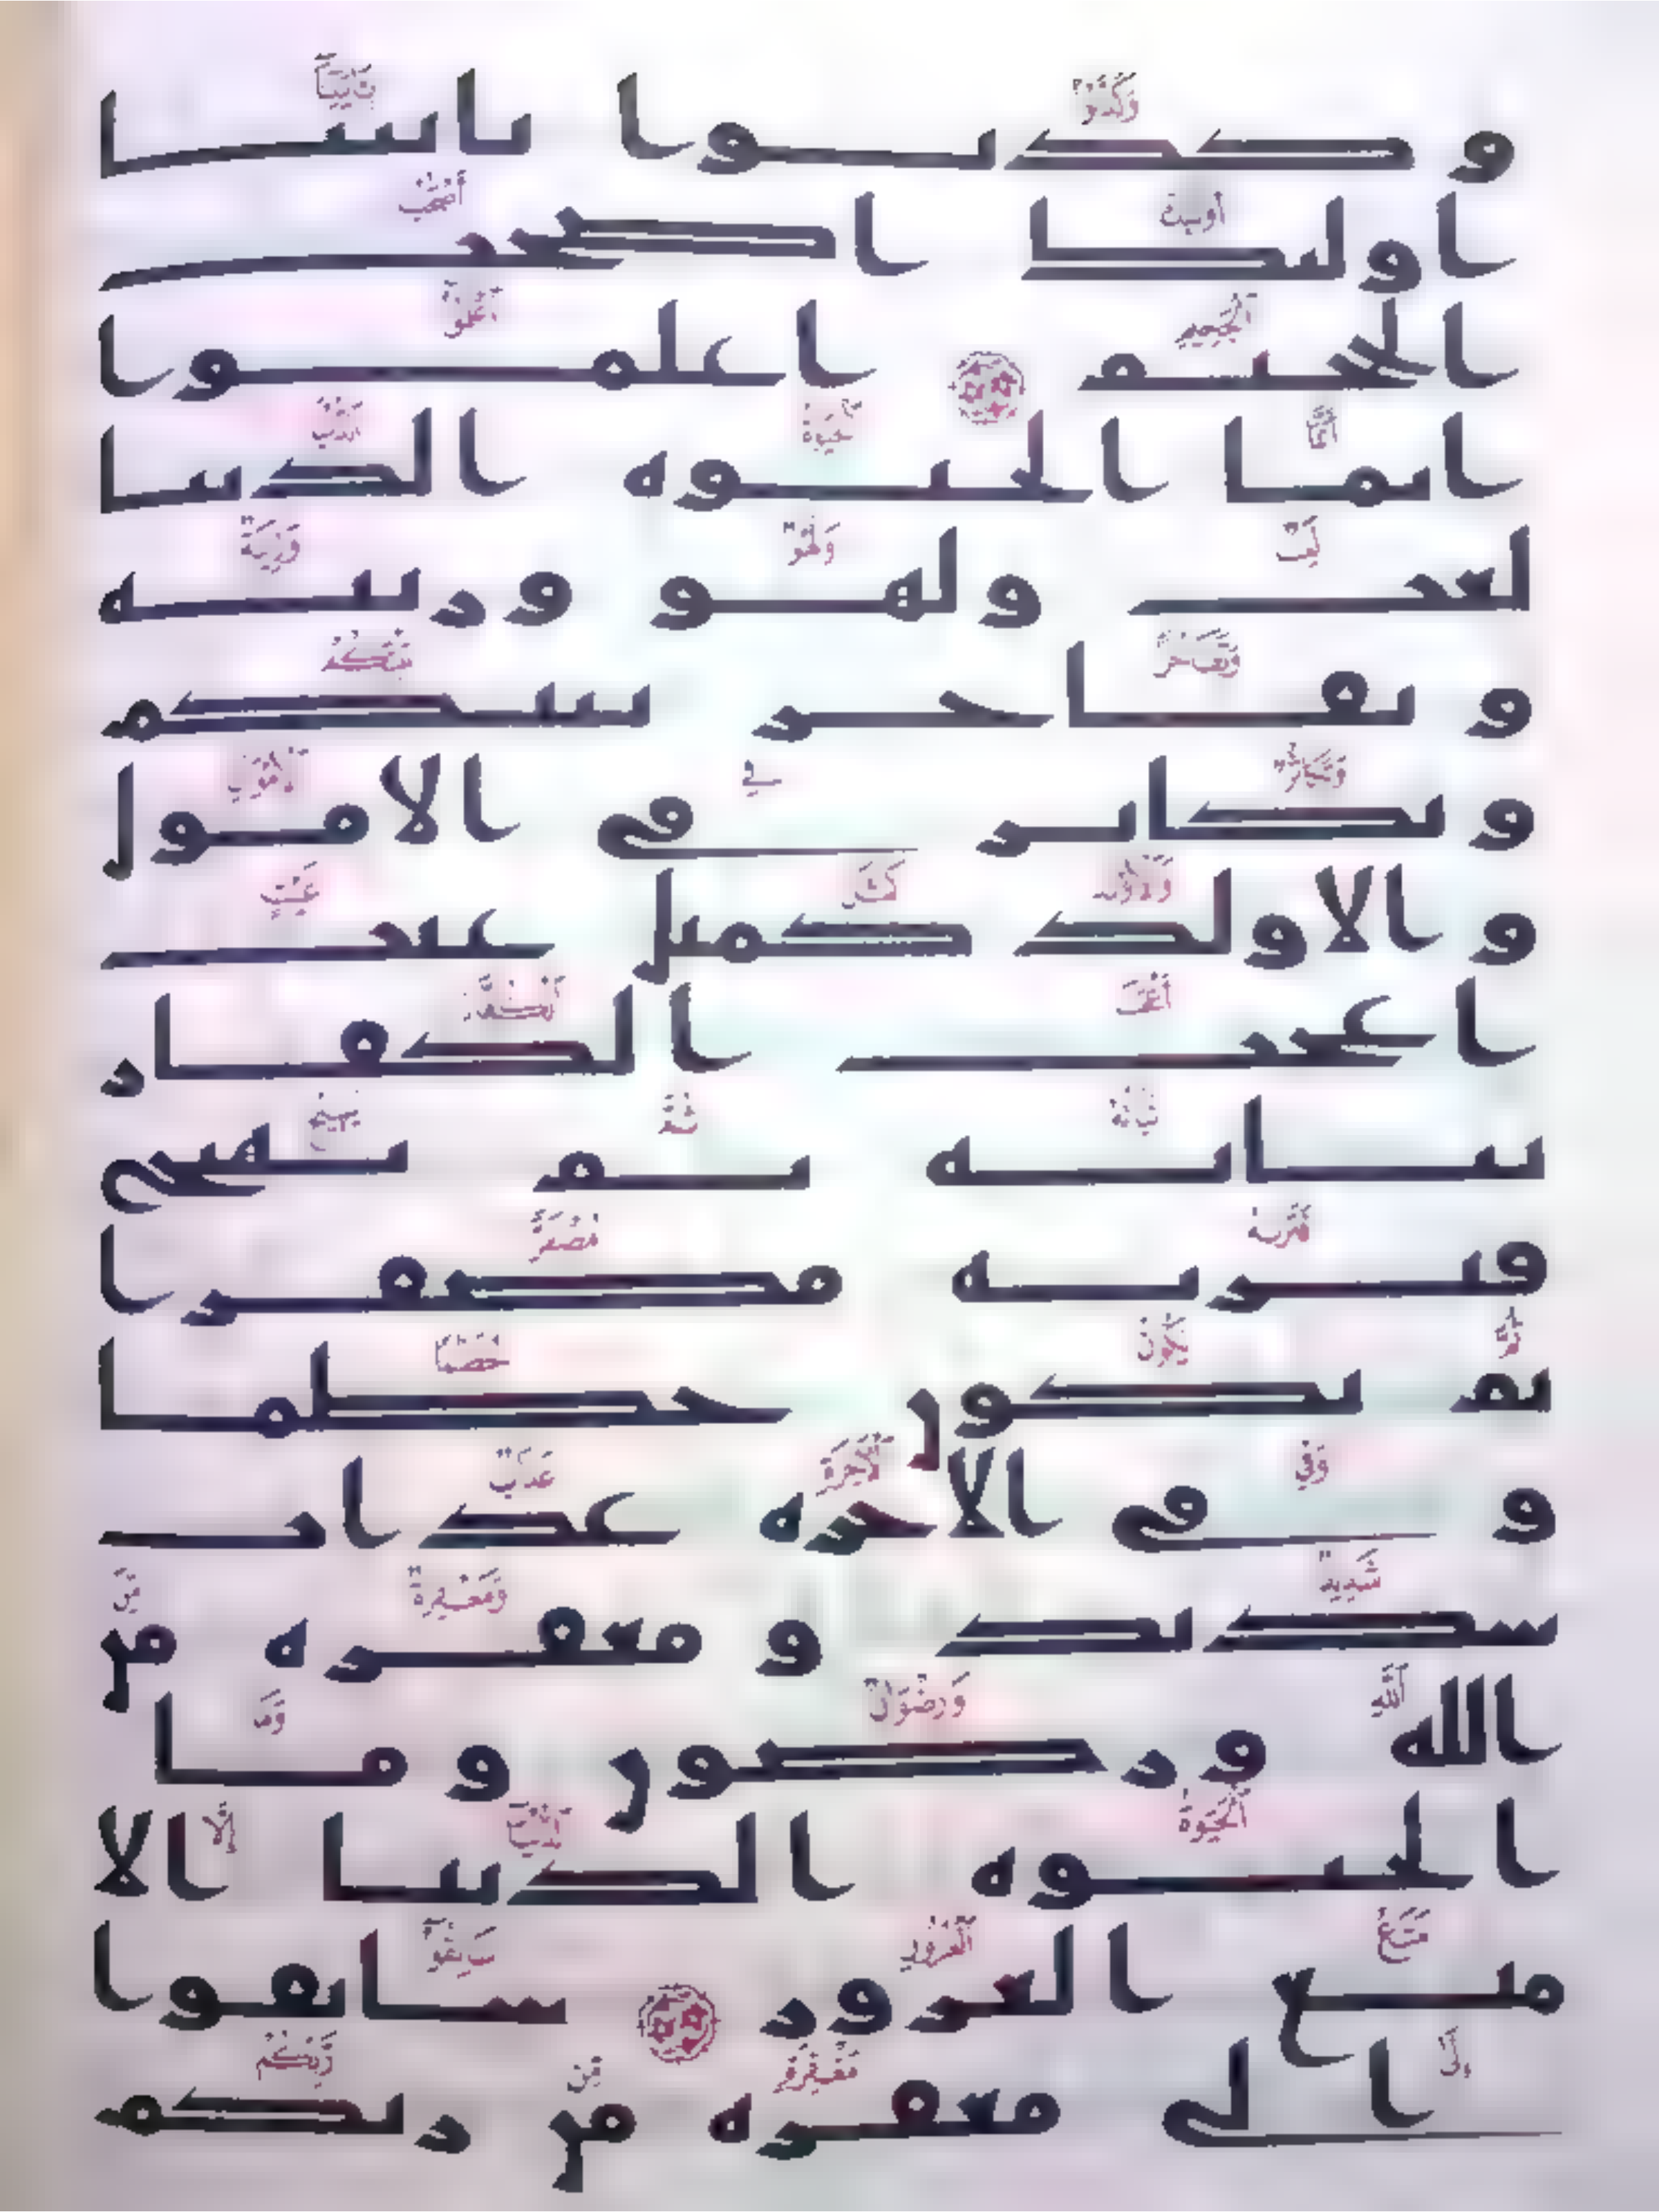 وكذبوا بايتنا
اولئك اصحب
الجحيم اعلموا
انما الحيوه الدنيا
لعب ولهو وزينه
و تفاخر بينكم
و تكاثر في الامول
و الاولد كمثل غيث
اعجب الكفار
نباته ثم يهيج
فتريه مصفرا
ثم يكون حطما
و في الاخره عذاب
شديد و مغفره من
الله ورضون و ما
الحيوه الدنيا الا
متع الغرور سابقوا
الى مغفره من ربكم